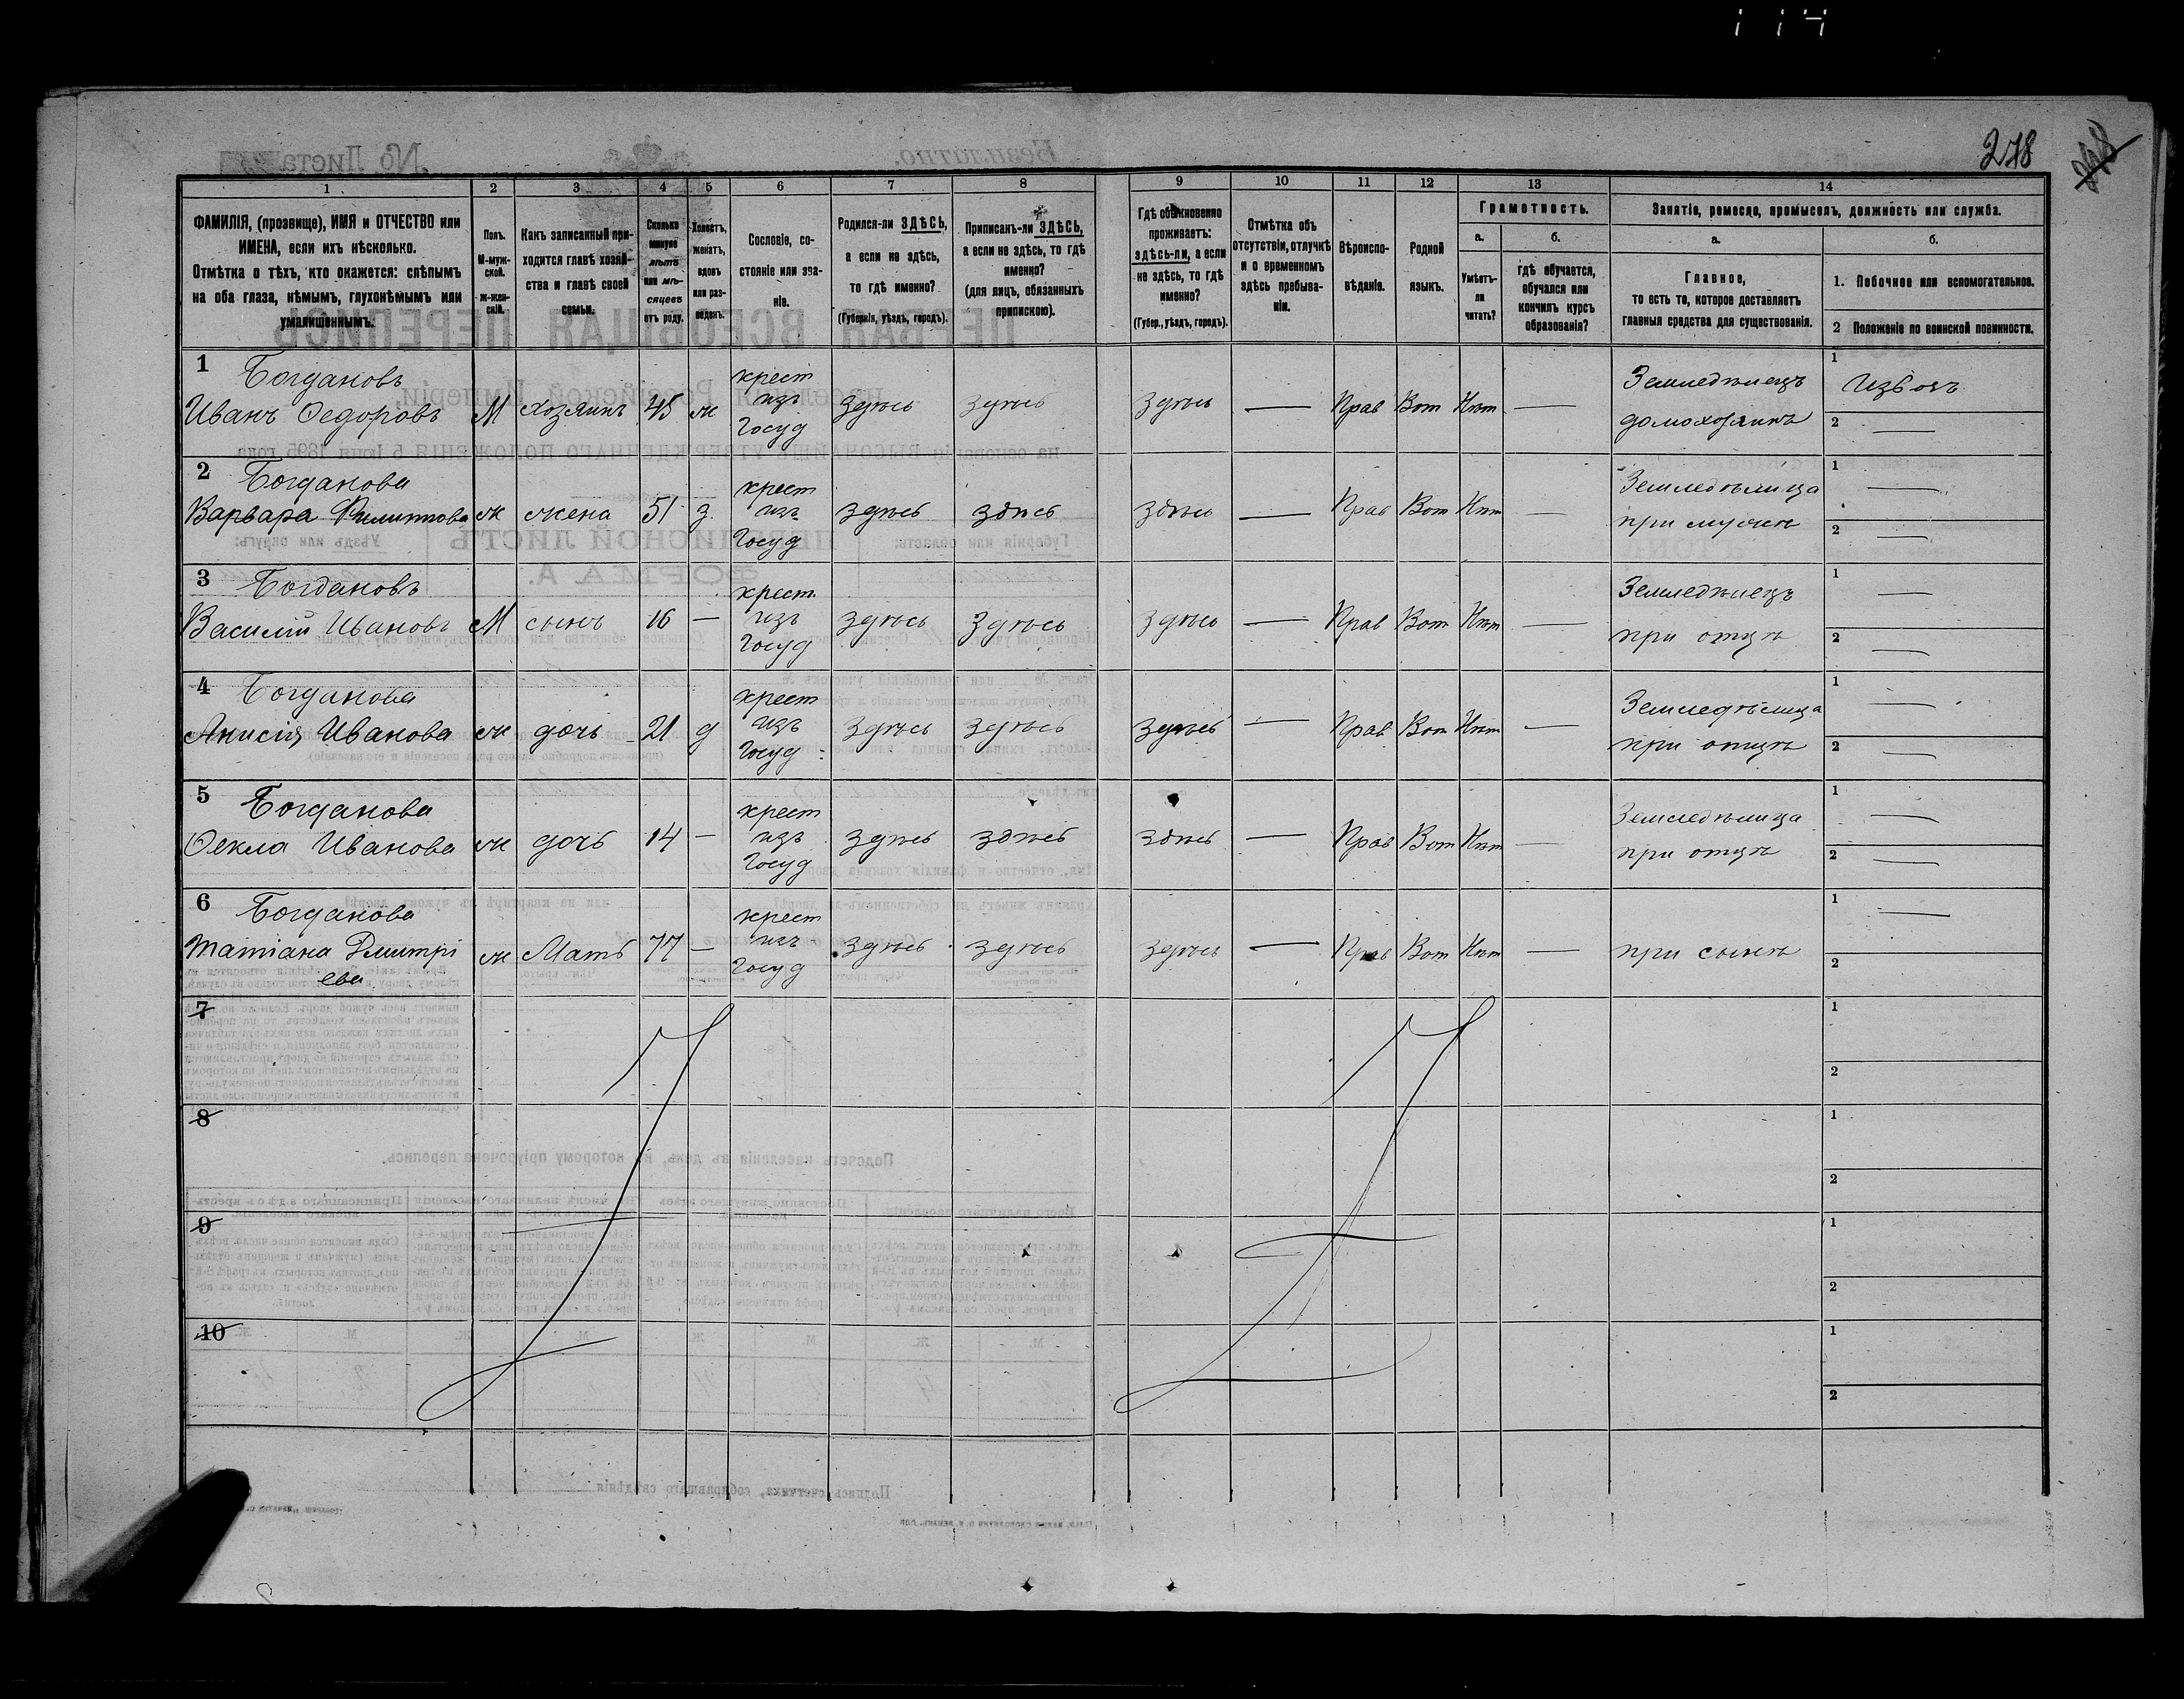 278
1 2 3 4 5 6 7 8 9 10 11 12 13 14
ФАМИЛІЯ, (прозвище), ИМЯ и ОТЧЕСТВО или
ИМЕНА, если ихъ нѣсколько.
Отмѣтка о тѣхъ, кто окажется: слѣпымъ
на оба глаза, нѣмымъ, глухонѣмымъ или
умалишеннымъ.
Полъ.
М-муж-
ской.
Ж-жен-
скій.
Какъ записанный при-
ходится главѣ хозяй-
ства и главѣ своей
семьи.
Сколько
минуло
лѣтъ
или мѣ-
сяцевъ
отъ роду.
Холостъ,
женатъ,
вдовъ
или раз-
веденъ.
Сословіе, со-
стояніе или зва-
ніе.
Родился-ли ЗДѢСЬ,
а если не здѣсь,
то гдѣ именно?
(Губернія, уѣздъ, городъ).
Приписанъ-ли ЗДѢСЬ,
а если не здѣсь, то гдѣ
именно?
(для лицъ, обязанныхъ
припискою).
Гдѣ обыкновенно
проживаетъ:
здѣсь-ли, а если
не здѣсь, то гдѣ
именно?
(Губер., уѣздъ, городъ).
Отмѣтка объ
отсутствіи, отлучкѣ
и о временномъ
здѣсь пребыва-
ніи.
Вѣроиспо-
вѣданіе.
Родной
языкъ.
Грамотность.
а.
Умѣетъ-
ли
читать?
б.
гдѣ обучается,
обучался или
кончилъ курсъ
образованія?
Занятіе, ремесло, промыселъ, должность или служба.
а.
Главное,
то есть то, которое доставляетъ
главныя средства для существованія.
б.
1. Побочное или вспомогательное.
2 Положеніе по воинской повинности.
1 Богдановъ
Иванъ Ѳедоровъ М хозяинъ 45 ж крест изъ Госуд здѣсь здѣсь здѣсь — Прав Вот Нѣт — Земледѣлецъ домохозяинъ 1 Извозъ 2 —
2 Богданова
Варвара Филиппова ж жена 51 з крест изъ Госуд здѣсь здѣсь здѣсь — Прав Вот Нѣт — Земледѣлица при мужѣ 1 — 2 —
3 Богдановъ
Василій Ивановъ М сынъ 16 — крест. изъ Госуд здѣсь здѣсь здѣсь — Прав Вот Нѣт — Земледѣлецъ при отцѣ 1 — 2 —
4 Богданова
Анисія Иванова ж дочь 21 д крест изъ Госуд здѣсь здѣсь здѣсь — Прав Вот Нѣт — Земледѣлица при отцѣ 1 — 2 —
5 Богданова
Ѳекла Иванова ж дочь 14 — крест изъ Госуд здѣсь здѣсь здѣсь — Прав Вот Нѣт — Земледѣлица при отцѣ 1 — 2 —
6 Богданова
Татіана Дмитрі
ева ж Мать 77 — крест изъ Госуд здѣсь здѣсь здѣсь — Прав Вот Нѣт — при сынѣ 1 — 2
7 1 2
8 1 2
9 1 2
10 1 2